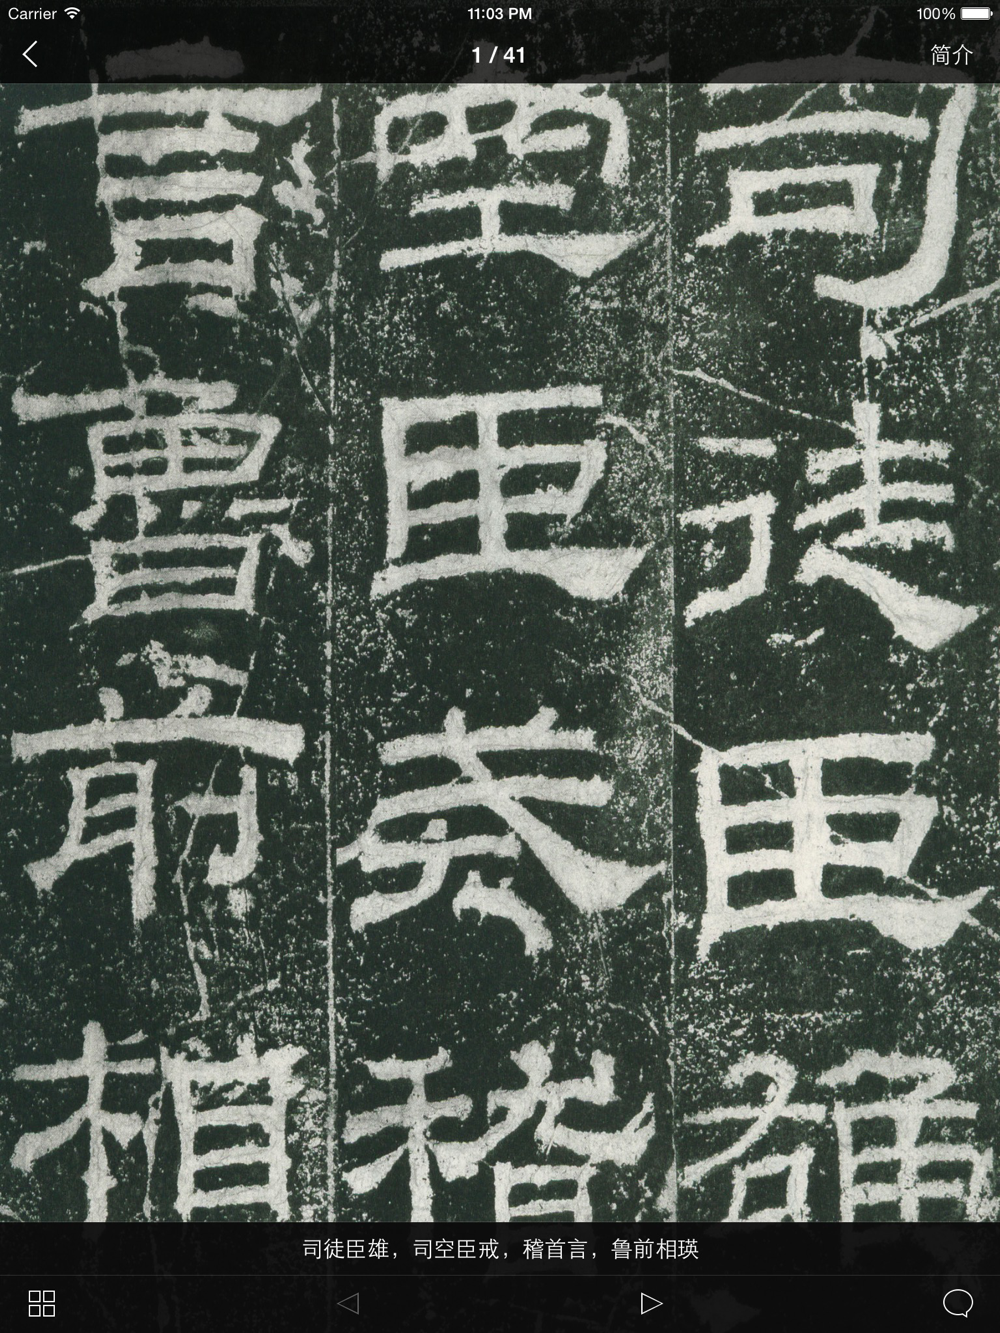 Carrier 11:03 PM 100%
1 / 41 简介
司徒臣雄
空臣戒稽
言魯前相
司徒臣雄，司空臣戒，稽首言，鲁前相瑛